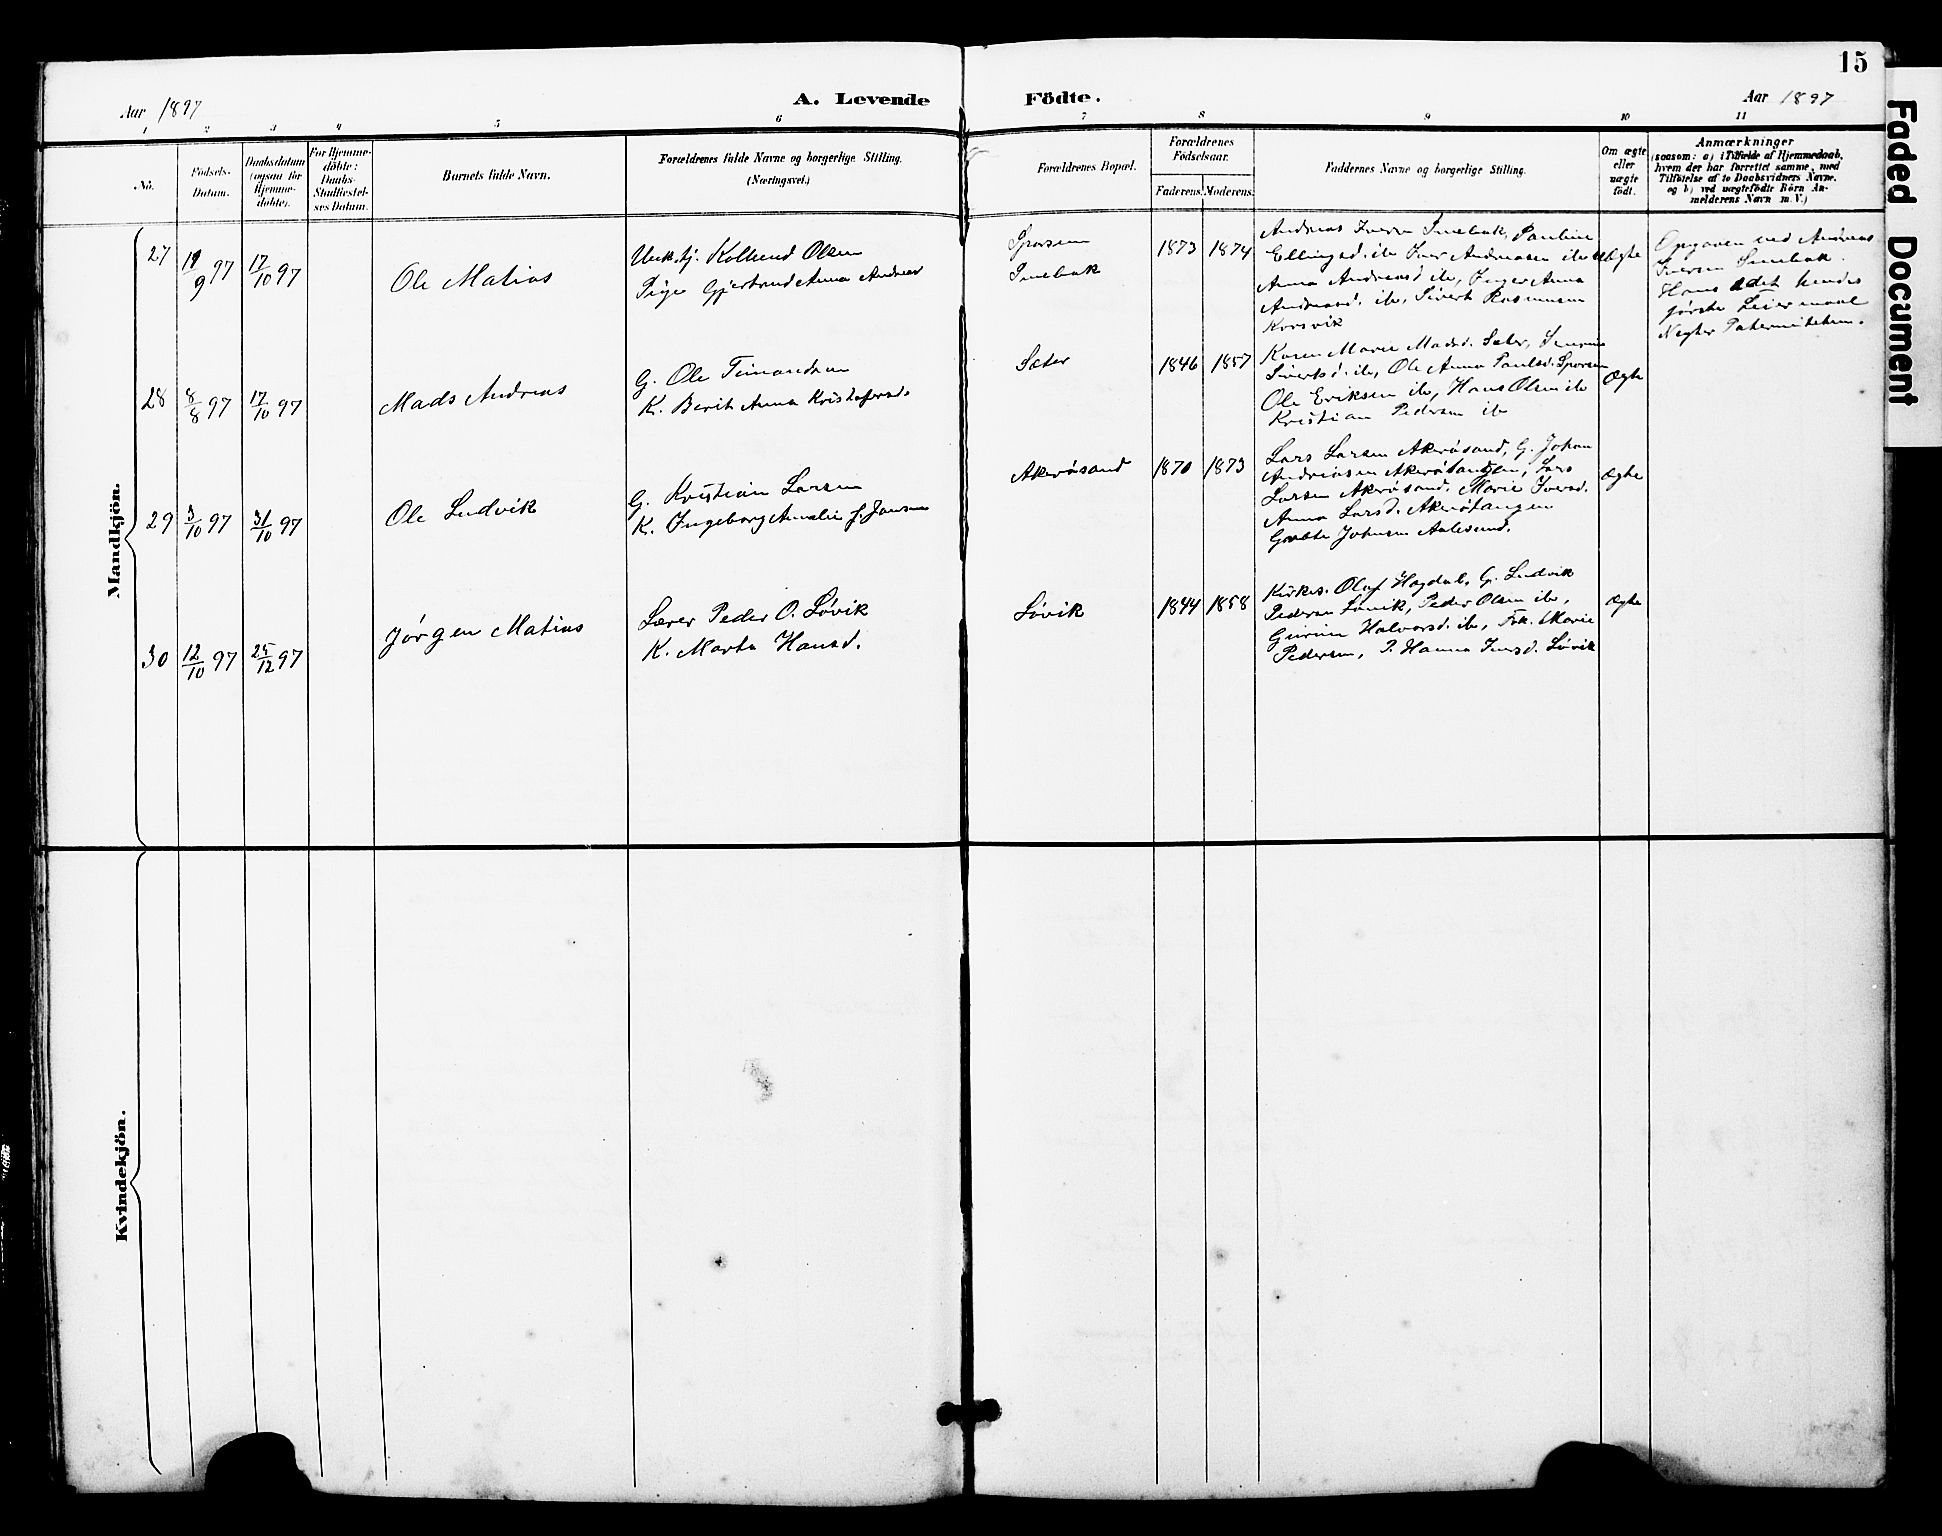 15
Faded Document
Aar 1897
A. Levende Födte.
Aar 1897
1 2 3 4 5 6 7 8 9 10 11
No.
Födsels-
Datum.
Daabsdatum
(ogsaa for
Hjemme-
döbte).
For Hjemme-
döbte:
Daabs-
Stadfæstel-
ses Datum.
Barnets fulde Navn.
Forældrenes fulde Navne og borgerlige Stilling.
(Næringsvei.)
Forældrenes Bopæl.
Forældrenes
Födselsaar.
Faderens. Moderens.
Faddernes Navne og borgerlige Stilling.
Om ægte
eller
uægte
födt.
Anmærkninger
(saasom: a) i Tilfælde af Hjemmedaab,
hvem der har forrettet samme, med
Tilföielse af to Daabsvidners Navne,
og b) ved uægtefödte Börn An-
melderens Navn m. V.)
Mandkjön.
27 19/9 97 17/10 97 Ole Matias
Ungk. tj. Kolbend Olsen
Pige Gjertrud Anna Andreasd
Sporsem
Smebak
1873 1874
Andreas Iversen Smebak, Pauline
Ellingsd. ib. Iver Andreasen ib.
Anna Andreasd ib, Inger Anna
Andreasd. ib, Sivert Rasmusen
Korsvik
Uægte
Opgaven ved Andreas
Iversen Smebak.
Hans & det hendes
første Leiermaal
Negter Paterniteten.
28 8/8 97 17/10 97 Mads Andreas
G. Ole Timandsen
K. Berit Anna Kristofersd.
Sæter
1846 1857
Karen Marie Madsd. Sæter,
Sivertsd. ib, Ole Anna Paulsd. Sporsem
Ole Eriksen ib, Hans Olsen ib
Kristian Pedersen ib
Ægte
29 3/10 97 31/10 97 Ole Ludvik
G. Kristian Larsen
K. Ingeborg Amalie f. Jansen
Akerøsand
1870 1873
Lars Larsen Akerøsand, G. Johan
Andreasen Akerøtangen, Lars
Larsen Akerøsand. Marie Iversd.
Anna Larsd. Akerøtangen
Johnsen Aalesund.
Ægte
30 12/10 97 25/12 97 Jørgen Matias
Lærer Peder O. Løvik
K. Marta Hansd.
Løvik
1844 1858
Kirkes. Olaf Hagdal, G. Ludvik
Pedersen Løvik, Peder Olsen ib,
Gurine Halvorsd. ib, Frk. Marie
Pedersen, P. Hanna Iversd. Løvik
Ægte
Kvindekjön.